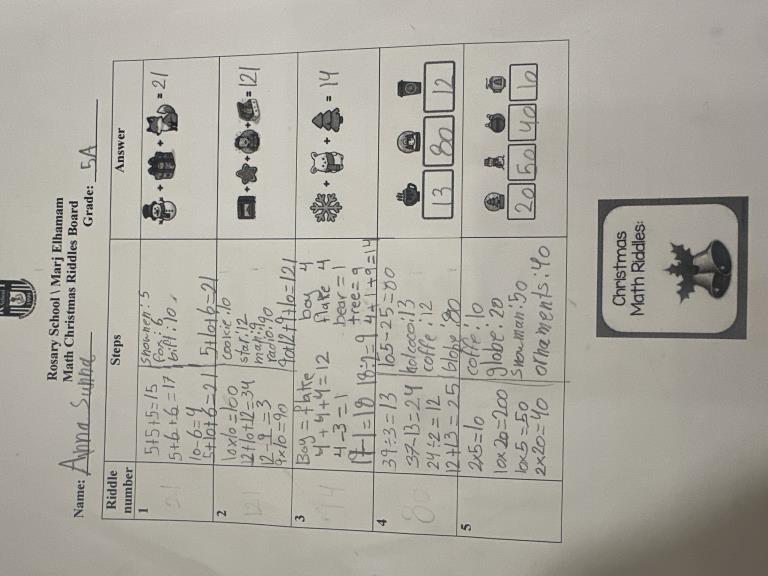 Rosary School \ Marj Elhamam
Math Christmas Riddles Board
Name: Anna Sunna Grade: 5A
Riddle number
Steps
Answer
1
21
5+5+5=15
5+6+6=17
10-6=4
5+10+6=21
snowmen: 5
fox: 6
bill: 10
5+10+6=21
+ + = 21
2
121
10x10=100
12+10+12=34
12-9=3
9x10=90
cookie: 10
star: 12
man: 9
radio: 90
90+12+9+10=121
+ + + = 121
3
14
Boy = flake
4+4+4=12
4-3=1
19-1=18 18÷2=9
boy 4
flake 4
bear = 1
tree = 9
4+1+9=14
+ + = 14
4
80
39÷3=13
37-13=24
24÷2=12
12+13=25
105-25=80
hotcoco: 13
coffe: 12
globe: 80
13 80 12
5
2x5=10
10x20=200
10x5=50
2x20=40
coffe: 10
globe: 20
Snowman: 50
ornaments: 40
20 50 40 10
Christmas
Math Riddles: